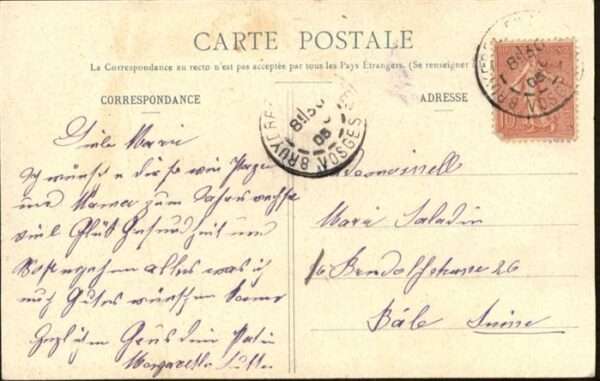 CARTE POSTALE
La Correspondance au recto n'est pas acceptée par tous les Pays Étrangers. (Se renseigner
CORRESPONDANCE
ADRESSE
BRUYERES VOSGES
05
BRUYERES VOSGES
05
Liebe Marie
Ich wünsche dir so wie
und Mama zum Jahreswechsel
viel Glück Gesundheit und
alles was ich
nur Gutes wünschen kann
Herzlichen Gruss dein
Margaretha
Mademoiselle
Marie Saladin
26
Bâle Suisse